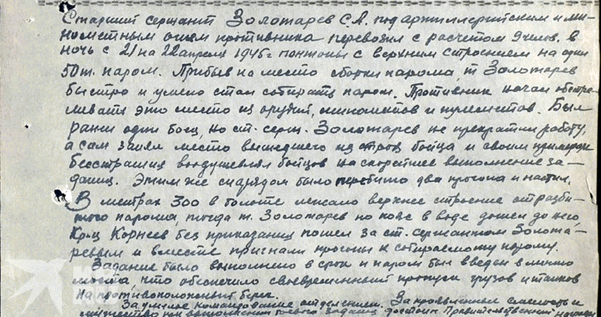 Старший сержант Золотарев С.А. под артиллерийским и ми-
нометным огнем противника перевозил с расчетом 9 челов. в
ночь с 21 на 22 апреля 1945г понтоны с верхним строением на один
50т. паром. Прибыв на место сборки парома, т. Золотарев
быстро и умело стал собирать паром. Противник начал обстре-
ливать это место из орудий, минометов и пулеметов. Был
ранен один боец, но ст. серж. Золотарев не прекратил работу,
а сам занял место вышедшего из строя бойца и своим примером
бесстрашия воодушевлял бойцов на скорейшее выполнение за-
дания. Этим же снарядом было перебито два прогона и настил.
В метрах 300 в болоте лежало верхнее строение от разби-
того парома тогда т. Золотарев по пояс в воде дошел до него.
Кр-ц Корнеев без приказания пошел за ст. сержантом Золота-
ревым и вместе пригнали прогоны к собираемому парому.
Задание было выполнено в срок и паром был введен в линию
моста, что обеспечило своевременный пропуск грузов и танков
на противоположный берег.
За умелое командование отделением, За проявленные смелость и
мужество при выполнении боевого задания достоин Правительственной награды